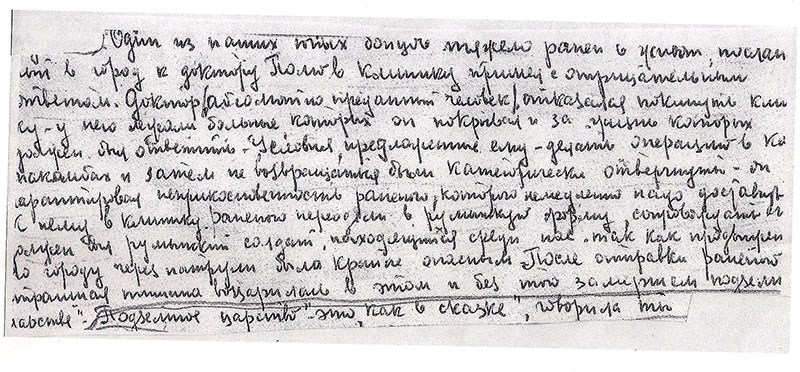 Один из наших юных бойцов тяжело ранен в живот, послан
ный в город к доктору в клинику пришел с отрицательным
ответом. Доктор /абсолютно преданный человек/ отказался покинуть кли
су - у него лежали больные которых он покрывал и за жизнь которых
должен был ответить. Условия, предложенные ему - делать операцию в ка
такамбах и затем не возвращаться были категорически отвергнуты - он
арантировал неприкосновенность раненого, которого немедленно надо доставить
к нему в клинику раненого переодели в румынскую форму, сопровождать ег
олжен был румынский солдат, находящийся среди нас - так как продвижен
по городу через патрули было крайне опасным. После отправки раненого
страшная тишина воцарилась в этом и без того замершем подзем
царстве". "Подземное царство" - это, как в сказке", говорила ты